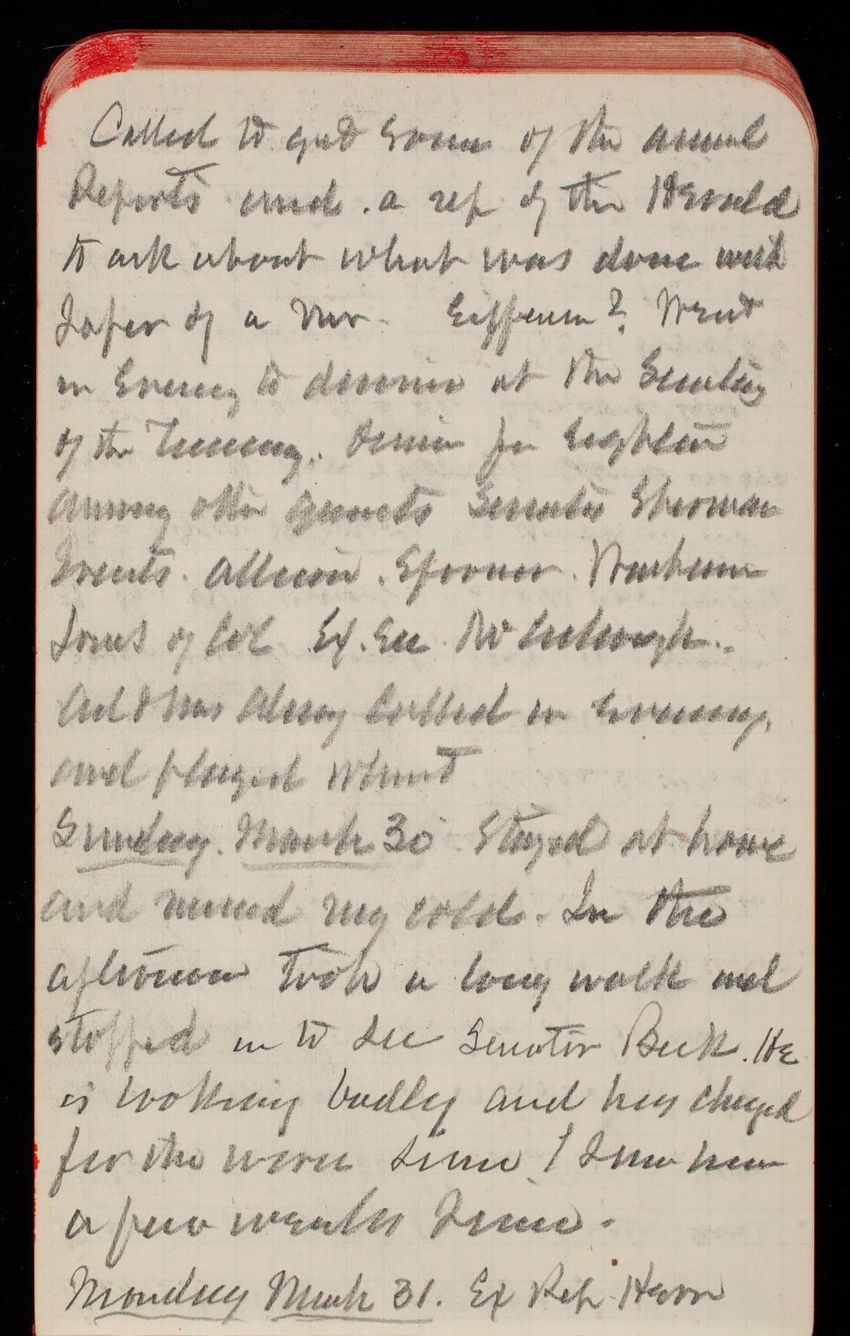 Called to get some of the annual
Reports and . a rep of the Herald
to ask about what was done with
of a Mr. Went
in Evening to dinner at the Secretary
of the Treasury. Dinner for eighteen
among other guests Senator Sherman
Allison . Spooner .
Jones of Ex. Sec McCullough.
Called in evening,
and played whist
Sunday. March 30 Stayed at home
and nursed my cold. In the
afternoon took a long walk and
stopped in to see Senator Beck. He
is looking badly and has changed
for the worse since I saw him
a few weeks since.
Monday March 31. Ex Rep